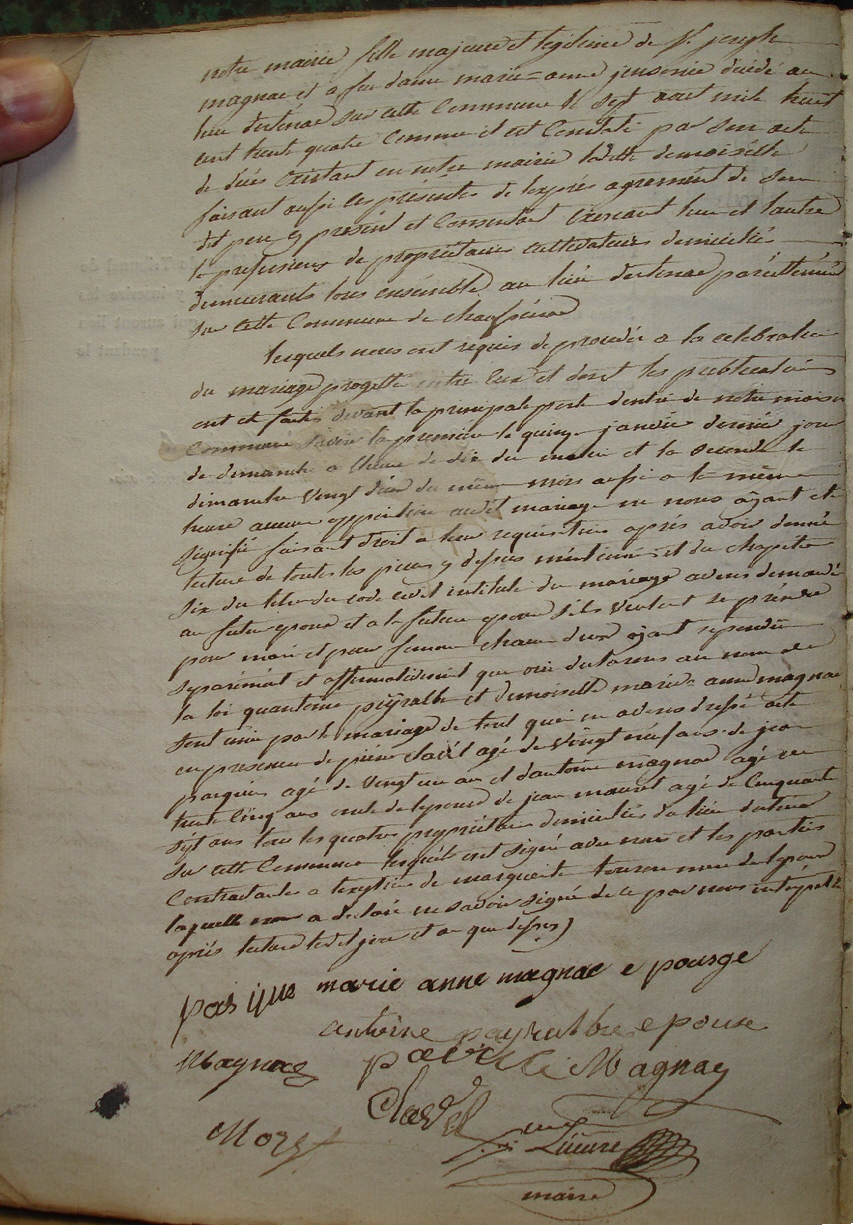 notre mairie fille majeure et legitime de Sr. joseph
magnac et a feu dame marie=anne decedé au
lieu destenac sur cette Commune le sept aout mile huit
cent trente quatre Comme il est Constaté par son acte
de déces Existant en notre mairie ladite demoiselle
faisant aussi les présentes de l'exprés agrement de son
dit pere y present et Consentant tant l'un et l'autre
le profession de propriétaire cultivateurs domiciliés
demeurants tous ensemble au lieu destenac
sur cette Commune de
lesquels nous ont requis de proceder a la celebration
du mariage progetté entre Eux et dont les publications
ont été faites devant la principale porte d'entré de notre maison
Commune savoir la premiere le quinze janvier dernier jour
de dimanche a l'heure de dix du matin et la seconde le
dimanche vingt deux du même mois aussi a la même
heure aucune opposition audit mariage ne nous ayant eté
signifié faisant droit a leur requisition aprés avoir donné
lecture de toutes les pieces y dessus mentionné et du chapitre
six du titre du code civil intitulé du mariage avons demandé
au futur epoux et a la future epouse s'ils veulent se prendre
pour mari et pour femme chacun d'eux ayant repondu
separément et affirmativement que oui declarons au nom de
la loi qu'antoine peyralbe et demoiselle marie=anne magnac
sont unis par le mariage de tout quoi en avons dressé acte
en presence de pierre clavél agé de vingt neuf ans de jean
pasquier agé de vingt un an et d'antoine magnac agé de
trente cinq ans oncle de lepouse de jean mauret agé de Cinquante
sept ans tous les quatre proprietaires domiciliés du lieu destenac
sur cette Commune lesquels ont signé avec nous et les parties
Contractantes a l'exception de marguerite mere de lepoux
laquelle a declaré ne savoir signer de ce par nous interpelée
aprés lecture ledit jour et an que dessus
marie anne magnac e pousge
antoine e pouse
Magnac Magnac
Clavel
maire